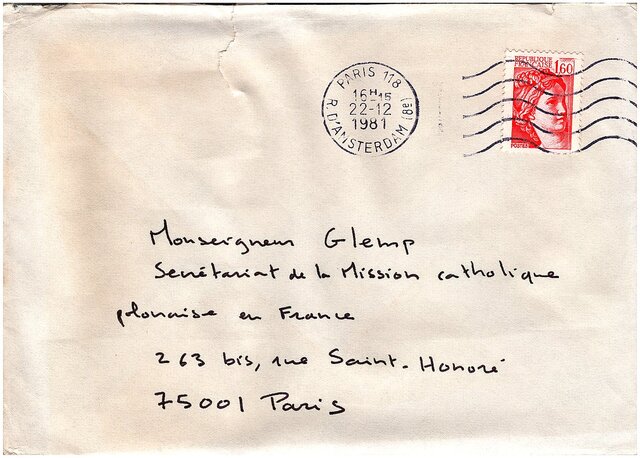 RÉPUBLIQUE
FRANÇAISE 1,60
POSTES
PARIS 118
16H15
22-12
1981
R. D'AMSTERDAM (8e)
Monseigneur Glemp
Secrétariat de la Mission catholique
polonaise en France
263 bis, rue Saint-Honoré
75001 Paris